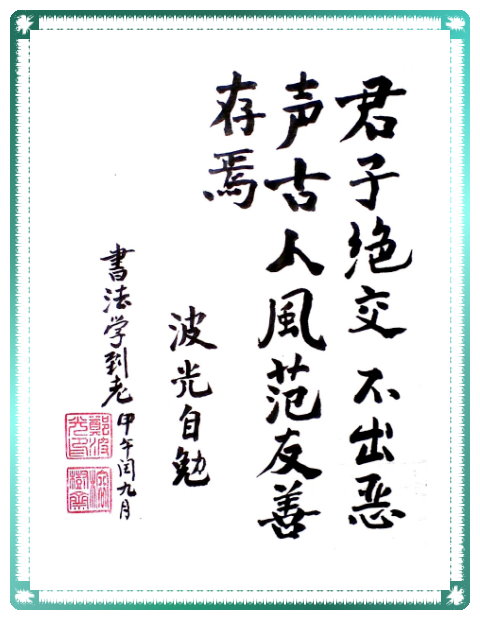 君子绝交不出恶
声古人風范友善
存焉
波光自勉
書法学到老
甲午闰九月